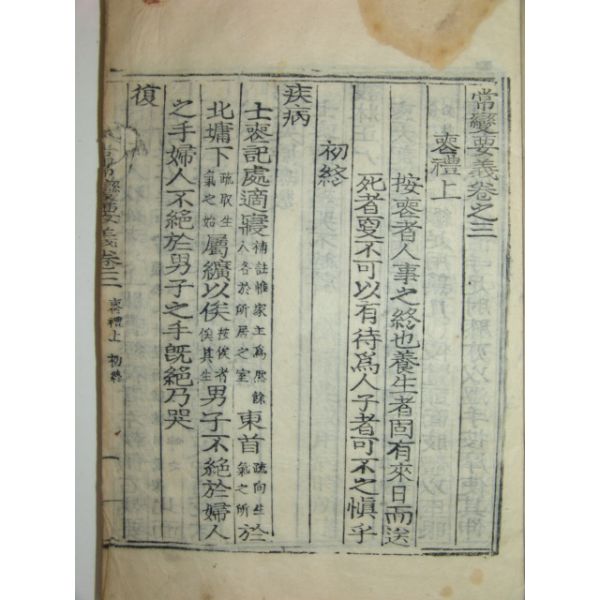 常變要義卷之三
喪禮上
按喪者人事之終也養生者固有來日而送
死者更不可以有待爲人子者可不之愼乎
初終
疾病
士喪記處適寢補註惟家主爲然餘人各於所居之室東首疏向生氣之所於
北墉下疏取生氣之始屬纊以俟按俟者俟其生男子不絶於婦人
之手婦人不絶於男子之手旣絶乃哭
復
常變要義卷三 喪禮上 初終